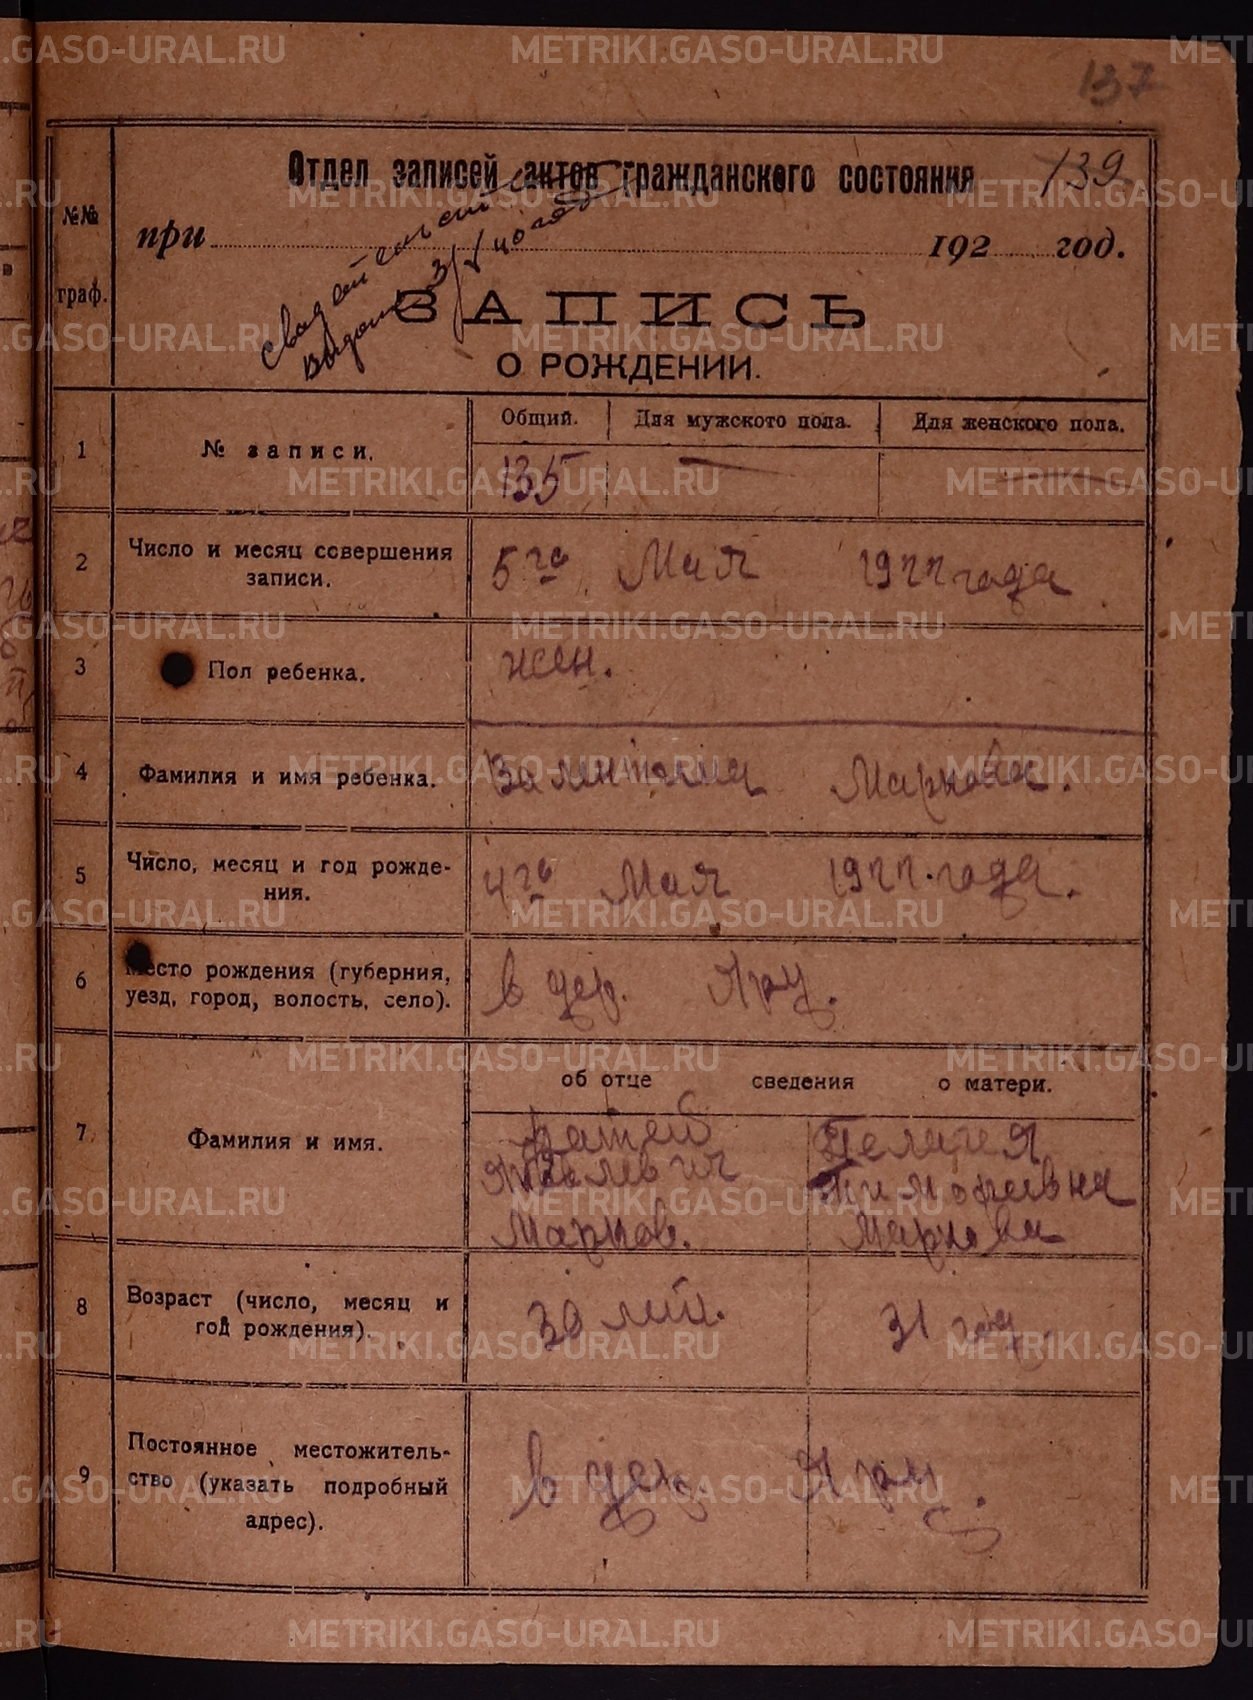 137
Отдел записей актов гражданского состояния
139
№№ граф.
при 192 год.
выдано 3/V 40 года
ЗАПИСЬ
О РОЖДЕНИИ.
Общий. Для мужского пола. Для женского пола.
1 № записи. 135 — —
2 Число и месяц совершения
записи.
5го Мая 1922 года
3 Пол ребенка. жен.
4 Фамилия и имя ребенка. Валентина Маркова.
5 Число, месяц и год рожде-
ния.
4го Мая 1922 года.
6 Место рождения (губерния,
уезд, город, волость, село).
в дер. Яру.
об отце сведения о матери.
7 Фамилия и имя.
Пелагея
Тимофеевна
Марков. Маркова
8 Возраст (число, месяц и
год рождения).
30 лет. 31 год.
9 Постоянное местожитель-
ство (указать подробный
адрес).
в дер. Яру.
METRIKI.GASO-URAL.RU